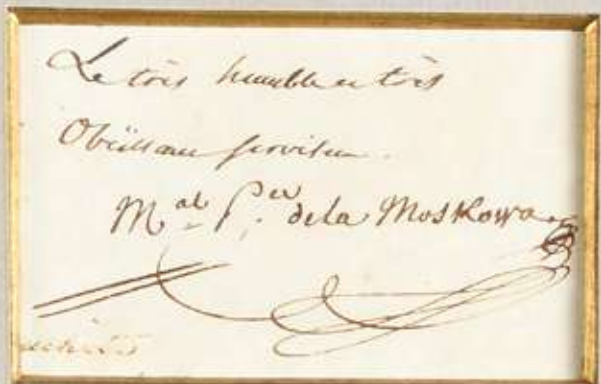 Le très humble et très
Obéissant serviteur.
Mal. Pce. de la Moskowa